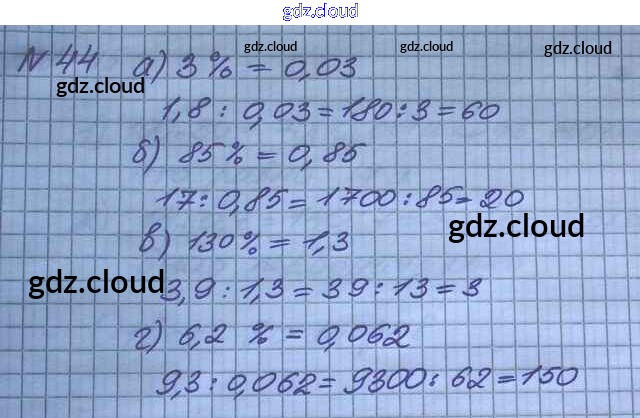 gdz.cloud
gdz.cloud gdz.cloud gdz.cloud
№ 44 а) 3% = 0,03
gdz.cloud
1,8 : 0,03 = 180 : 3 = 60
б) 85% = 0,85
17 : 0,85 = 1700 : 85 = 20
gdz.cloud
в) 130% = 1,3
gdz.cloud
3,9 : 1,3 = 39 : 13 = 3
г) 6,2 % = 0,062
9,3 : 0,062 = 9300 : 62 = 150